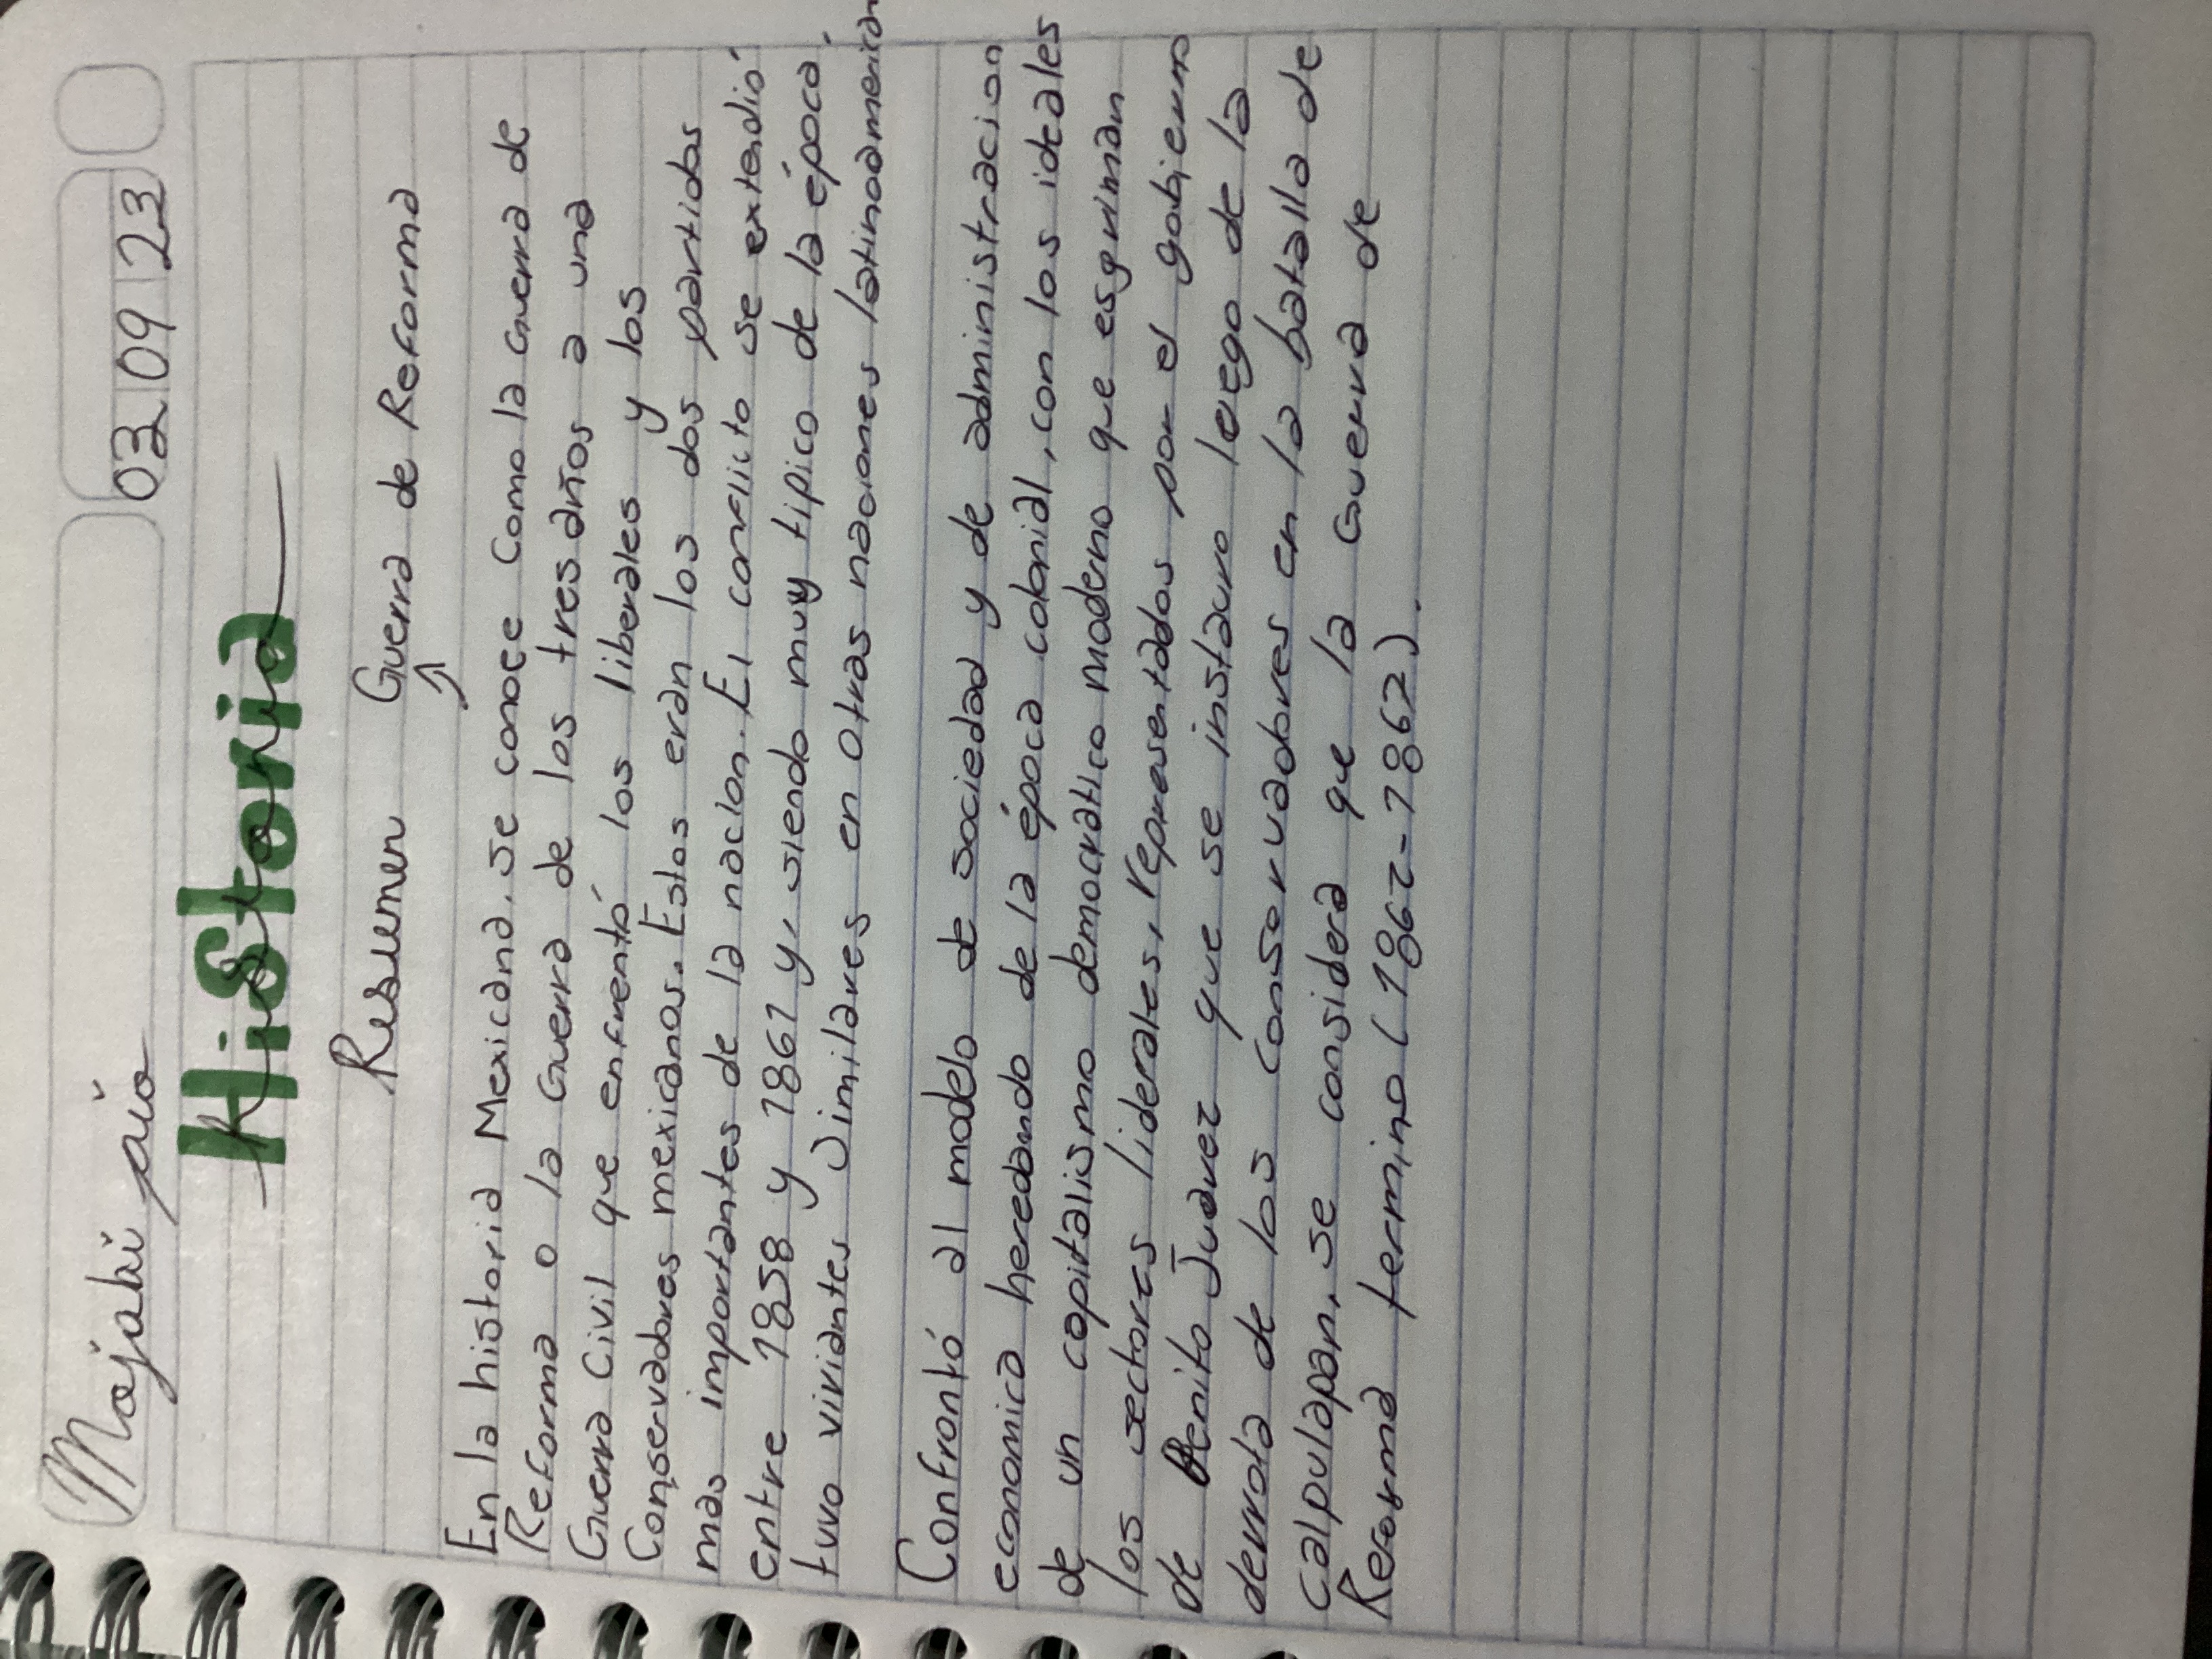 Majabi pio
03 09 23
Historia
Resumen Guerra de Reforma
En la historia Mexicana, se conoce Como la Guerra de
Reforma o la Guerra de los tres años a una
Guerra Civil que enfrentó los liberales y los
Conservadores mexicanos. Estos eran los dos partidos
mas importantes de la nacion. El conflicto se extendió
entre 1858 y 1861 y, siendo muy tipico de la época,
tuvo viriantes Similares en otras naciones latinoamerica
Confrontó al modelo de sociedad y de administracion
economica heredando de la época colonial, con los ideales
de un capitalismo democratico moderno que esgriman
los sectores liderales, representados por el gobierno
de Benito Juarez que se instauro luego de la
derrota de los Conservadores en la batalla de
calpulapan, se considera que la Guerra de
Reforma termino (1862-1862).